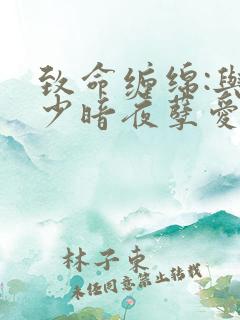 致命缠绵:与
少暗夜孽爱
林子東
未经同意禁止转载